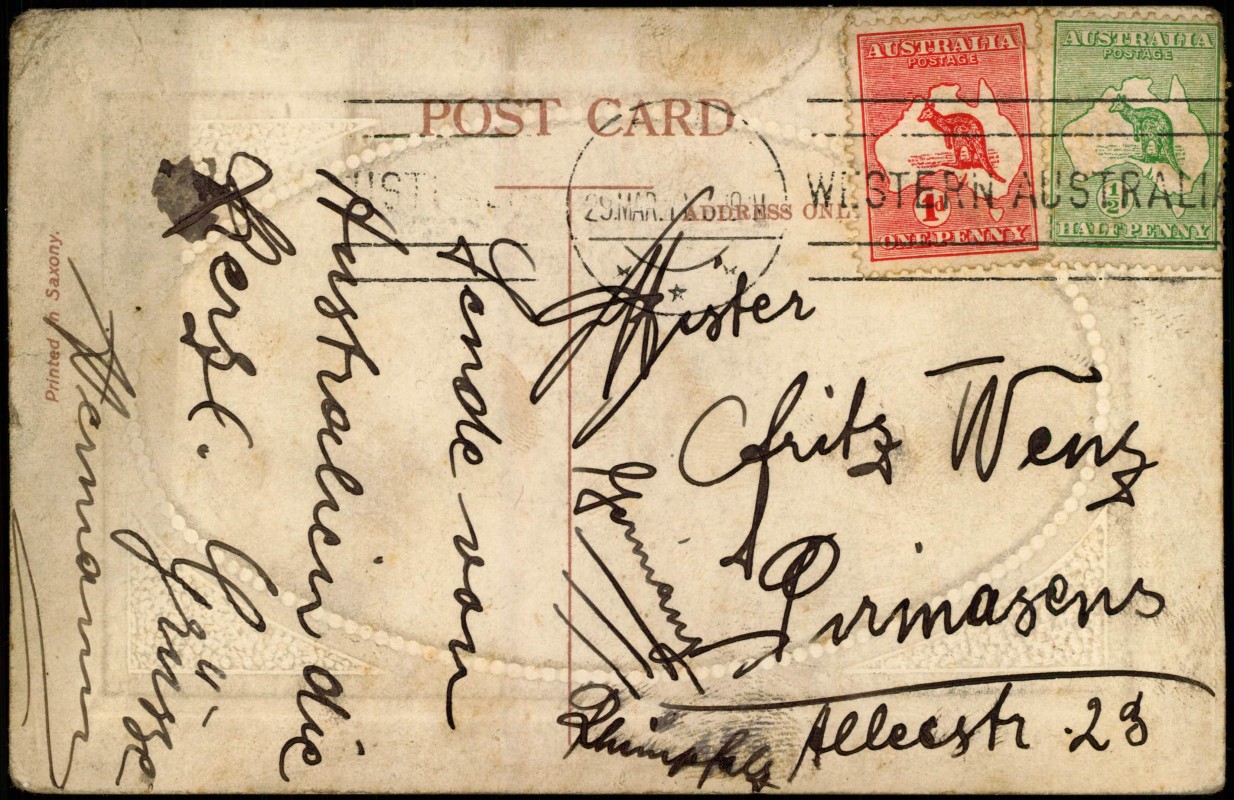 POST CARD
AUSTRALIA
POSTAGE
1d
ONE PENNY
AUSTRALIA
POSTAGE
½d
HALFPENNY
WESTERN AUSTRALIA
29.MAR.
ADDRESS ONLY
Printed in Saxony.
Sende von
Australien die
Herzl. Grüsse
Hermann
Mister
Fritz Wenz
Pirmasens
Alleestr. 23
Rheinpfalz
Germany